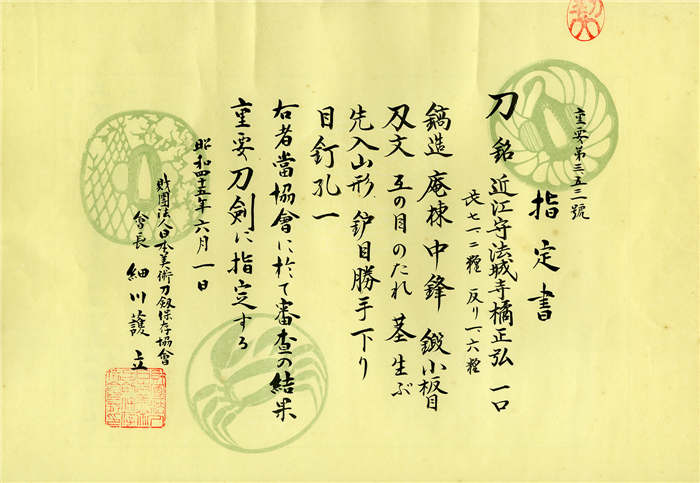 重要第三五二號
指定書
刀 銘 近江守法城寺橘正弘 一口
長七一・二糎 反り一・六糎
鎬造 庵棟 中鋒 鍛小板目
刄文 互の目のたれ 茎生ぶ
先入山形 鈩目勝手下り
目釘孔一
右者當協會に於て審査の結果
重要刀劍に指定する
昭和四十五年六月一日
財團法人日本美術刀劔保存協會
會長 細川護立